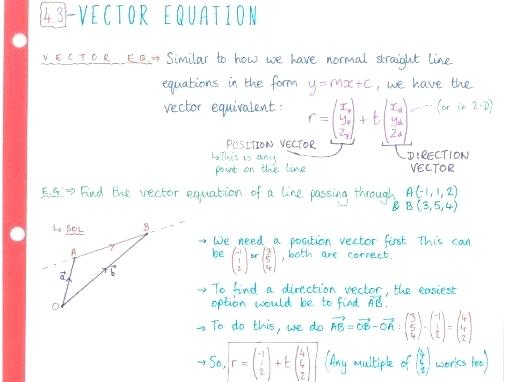 4.3 - VECTOR EQUATION
VECTOR EQ. ⇒ Similar to how we have normal straight line
equations in the form y=mx+c, we have the
vector equivalent:
r = (xₚ yₚ zₚ) + t (x_d y_d z_d) (or in 2-D)
POSITION VECTOR
↳ This is any
point on the line
DIRECTION
VECTOR
E.G. ⇒ Find the vector equation of a line passing through A(-1,1,2)
& B(3,5,4)
↳ SOL
A
B
a
b
O
→ We need a position vector first. This can
be (-1 1 2) or (3 5 4), both are correct.
→ To find a direction vector, the easiest
option would be to find AB.
→ To do this, we do AB = OB - OA : (3 5 4) - (-1 1 2) = (4 4 2)
→ So, r = (-1 1 2) + t (4 4 2) (Any multiple of (4 4 2) works too)